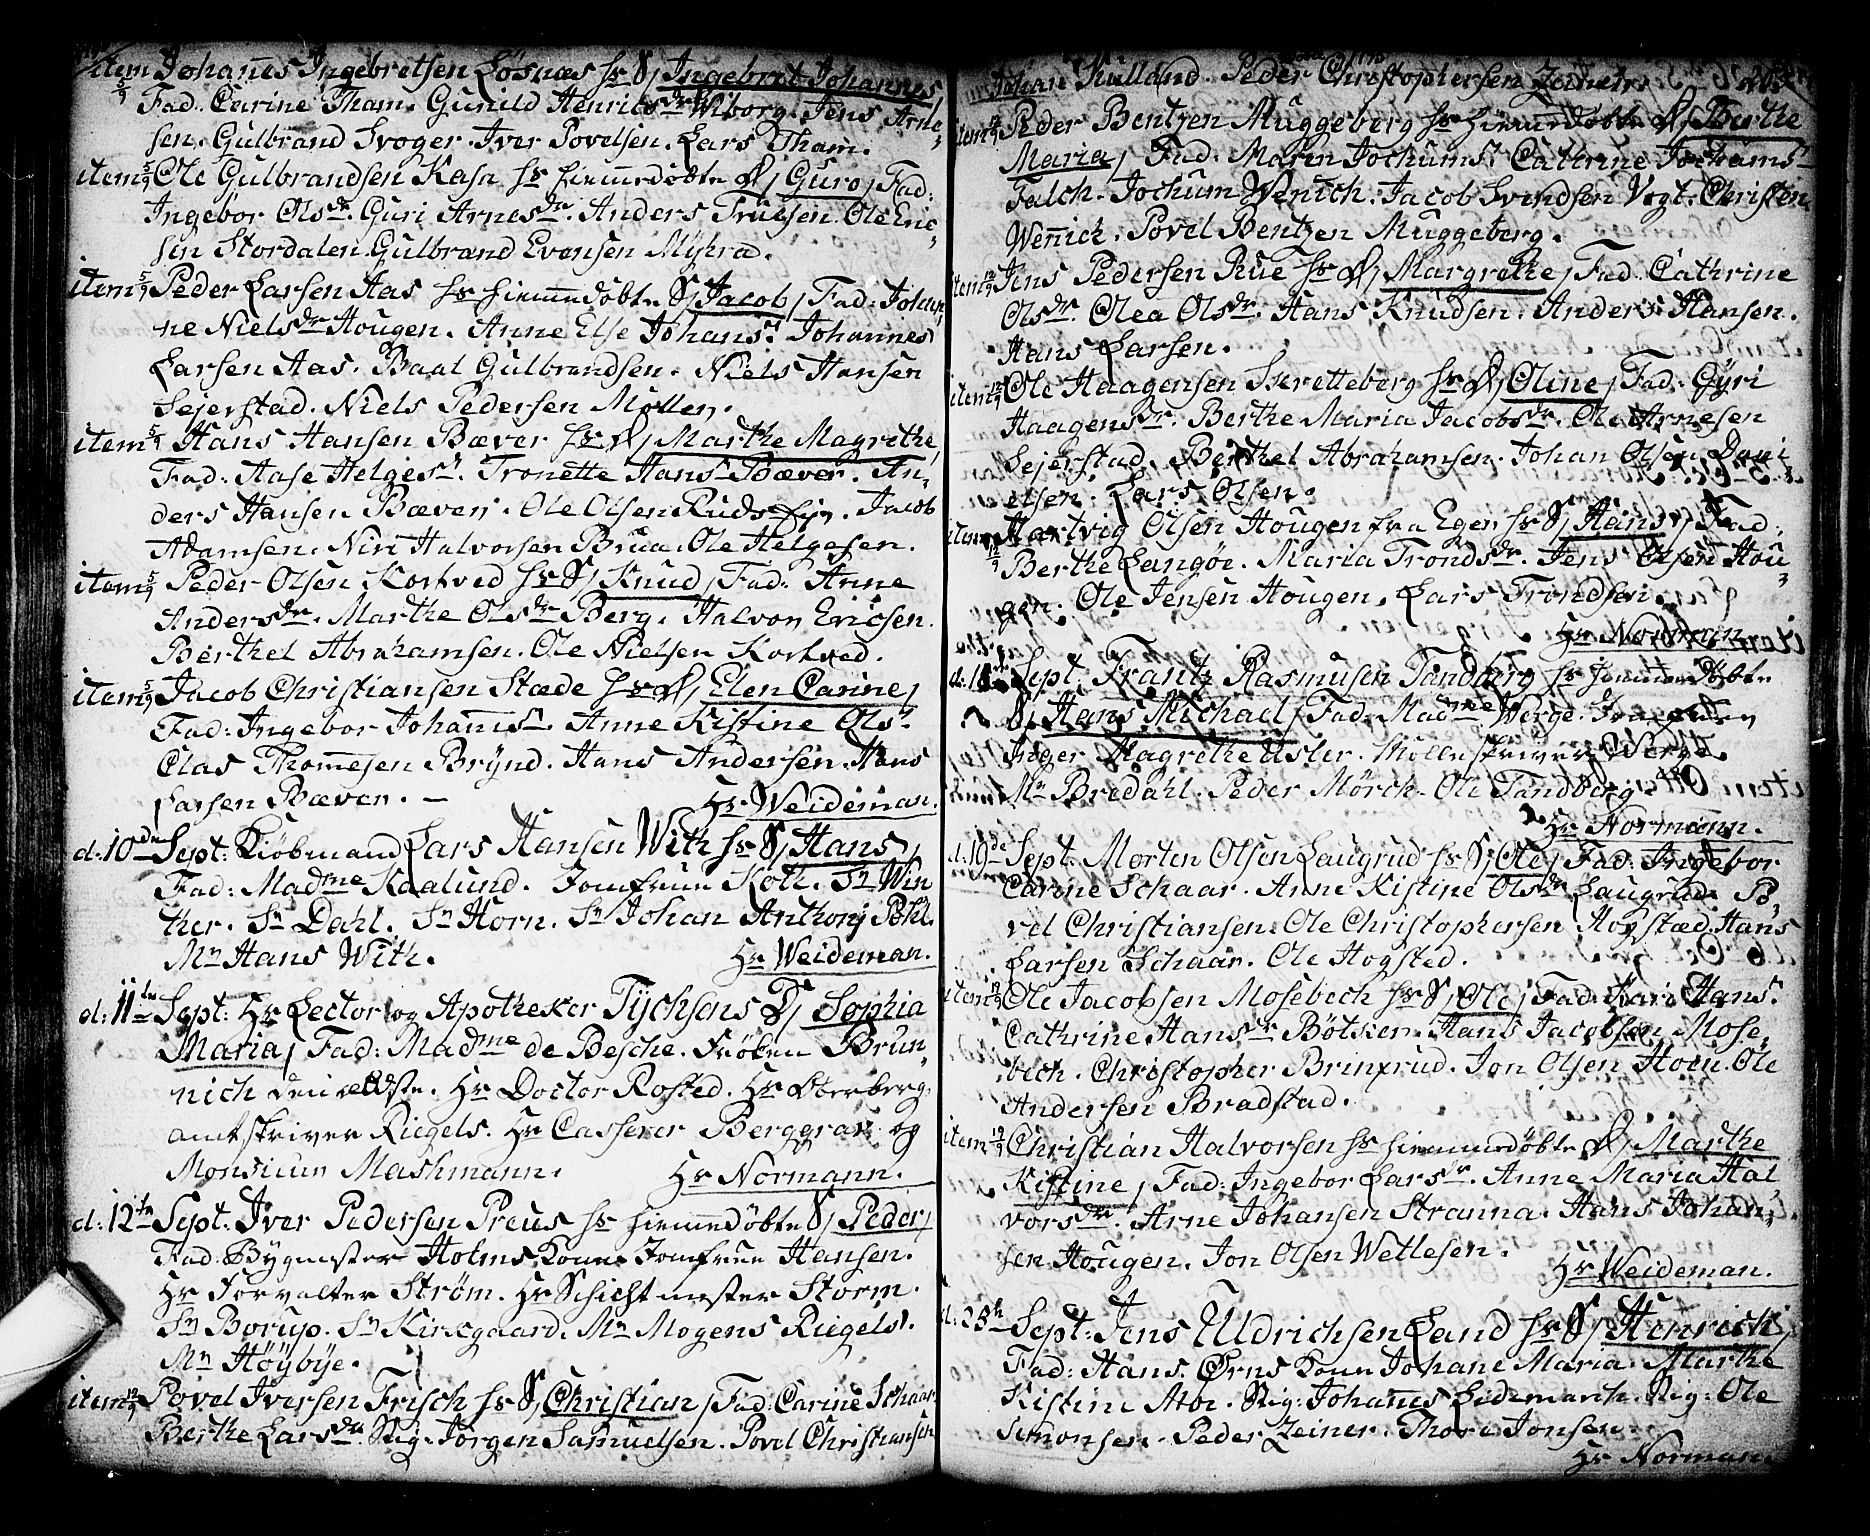 item 5/9 Johannes Ingebretsen Losnæs hs S, Ingebret Johannes
Fad: Carine Tham. Gunild Henrichsdr Wiborg. Jens Arne
sen. Gulbrand Svoger. Iver Povelsen. Lars Tham.
item 5/9 Ole Gulbrandsen Kasa hs hiemmedøbte D, Guro, Fad:
Ingebor Olsdr. Guri Arnesdr. Anders Truelsen. Ole Eric
sen Stordalen. Gulbrand Evensen Myhra.
item 5/9 Peder Larsen Aas hs hiemmedøbte S, Jacob, Fad: Johan
ne Nielsdr Hougen. Anne Else Johansdr. Johannes
Larsen Aas. Baal Gulbrandsen. Niels Hansen
Sejerstad. Niels Pedersen Møller.
item 5/9 Hans Hansen Bæver hs D, Marthe Magrethe,
Fad: Aase Helgesdr. Tronette Hansdr Bæver. An
ders Hansen Bæver. Ole Olsen Ruds Eje. Jacob
Adamsen. Niri Halvorsen Brua. Ole Helgesen.
item 5/9 Peder Olsen Kortved hs S, Knud, Fad: Anne
Andersdr. Marthe Olsdr Berg. Halvor Ericsen.
Berthel Abrahamsen. Ole Nielsen Kortved.
item 5/9 Jacob Christiansen Stæde hs D, Elen Carine,
Fad: Ingebor Johannisdr. Anne Kistine Olsdr
Clas Thommesen Brynd. Hans Andersen. Hans
Larsen Bæver. —
Hr Weideman.
d: 10de Sept: Kiøbmand Lars Hansen With hs S, Hans,
Fad: Madme Kaalund. Jomfrue Koch. Sr Win
ther. Sr Dahl. Sr Horn. Sr Johan Anthonj Pohl.
Mr Hans With.
Hr Weideman.
d: 11te Sept: Hr Lector og Apotheker Tychsens D, Sophia
Maria, Fad: Madme de Besche. Frøken Brun
nich den eldste. Hr Doctor Rosted. Hr Sterberg.
amtskriver Riegels. Hr Casserer Berggrav og
Monsieur Mashmann.
Hr Normann.
d: 12te Sept. Iver Pedersen Preus hs hiemmedøbte S, Peder,
Fad: Bygmester Holms Kone. Jomfrue Hansen.
Hr Forvalter Strøm. Hr Schichtmester Storm.
Sr Borup. Sr Kirsgaard. Mr Mogens Riegels.
Mr Høybye.
item 12/9 Povel Iversen Frisch hs S, Christian, Fad: Carine Schaar
Berthe Larsdr. Stig: Jørgen Samuelsen. Povel Christiansen
Johan Kulland. Peder Christophersen Zeiner.
item 12/9 Peder Bentzen Muggeberg hs hiemmedøbte D, Berthe
Maria, Fad: Maren Jochumsdr. Cathrine Jochumsdr
Falch. Jochum Wenich. Jacob Svendsen Vogt. Christen
Wennich. Povel Bentzen Muggeberg.
item 12/9 Jens Pedersen Rue hs D, Margrethe, Fad: Cathrine
Olsdr. Olea Olsdr. Hans Knudsen. Anders Hansen.
Hans Larsen.
item 12/9 Ole Haagensen Skretteberg hs D, Oline, Fad: Gyri
Haagensdr. Berthe Maria Jacobsdr. Ole Arnesen
Sejerstad. Berthel Abrahamsen. Johan Olsen. Dani
elsen. Lars Olsen.
item 12/9 Hartvig Olsen Hougen fra Eger hs S, Hans, Fad:
Berthe Langøe. Maria Trondsdr. Jens Olsen Hou
gen. Ole Jensen Hougen. Lars Trondsen.
Hr Normann
d: 18de Sept. Frantz Rasmusen Tandberg hs hiemmedøbte
S, Hans Michael, Fad: Madme Werge. Jomfruen
Inger Magrethe Usler. Mølleskriver Werge.
Mr Bredahl. Peder Mörch. Ole Tandberg.
Hr Normann.
d: 19de Sept. Morten Olsen Laugrud hs S, Ole, Fad: Ingebor
Carine Schaar. Anne Kistine Olsdr Laugrud. Po
vel Christiansen. Ole Christophersen Hogstæd. Hans
Larsen Schaar. Ole Hogsted.
item 19/9 Ole Jacobsen Mosebech hs S, Ole, Fad: Kari Hansdr
Cathrine Hansdr Bötsker. Hans Jacobsen Mose
bech. Christopher Brinxrud. Jon Olsen Hoen. Ole
Andersen Bradstad.
item 19/9 Christian Halvorsen hs hiemmedöbte D, Marthe
Kistine, Fad: Ingebor Larsdr. Anne Maria Hal
vorsdr. Arne Johansen Stranna. Hans Johan
sen Hougen. Jon Olsen Wetlesen.
Hr Weideman.
d: 23de Sept: Jens Uldrichsen Land hs S, Henrich,
Fad: Hans Ørns Kone Johane Maria. Marthe
Kistine Moe. Stig: Johannes Lidemarch. Stig: Ole
Simonsen. Peder Zeiner. Thore Jonsen.
Hr Norman.